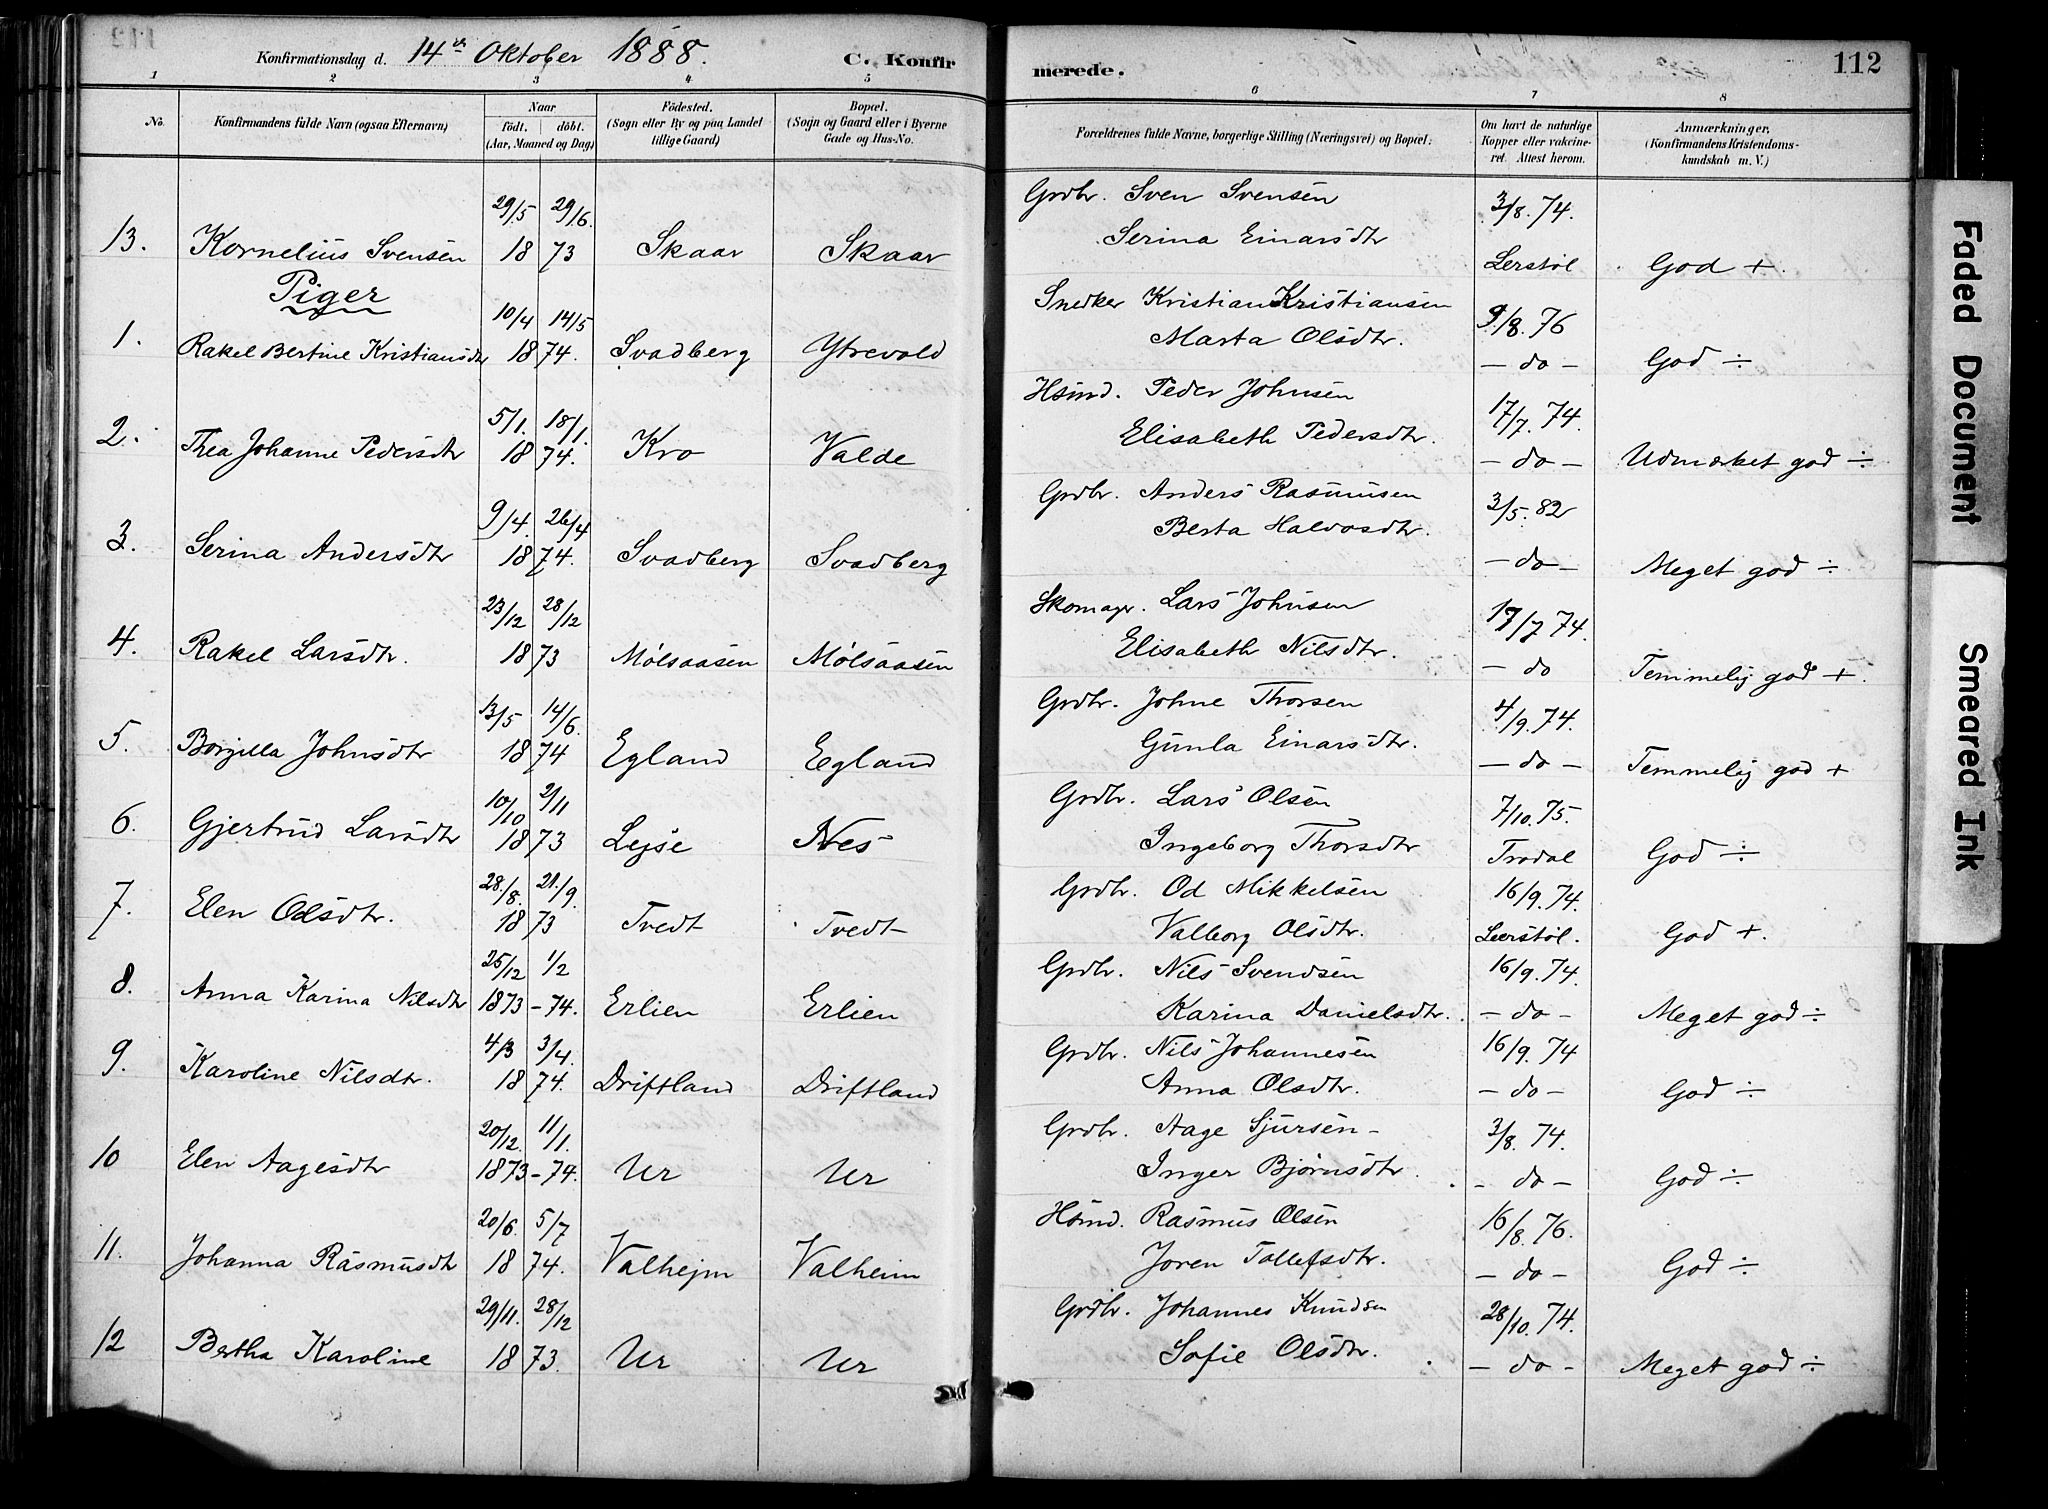 Konfirmationsdag d. 14de Oktober 1888. C. Konfir
merede. 112
1 2 3 4 5 6 7 8
No. Konfirmandens fulde Navn (ogsaa Efternavn) Naar födt. döbt. (Aar, Maaned og Dag) Födested. (Sogn eller By og paa Landet tillige Gaard) Bopæl. (Sogn og Gaard eller i Byerne Gade og Hus-No. Forældrenes fulde Navne, borgerlige Stilling (Næringsvei) og Bopæl. Om havt de naturlige Kopper eller vakcineret. Attest herom. Anmærkninger, (Konfirmandens Kristendomskundskab m. V.)
29/5 29/6. Grdbr. Sven Svensen 3/8. 74.
13. Kornelius Svensen 18 73 Skaar Skaar Serina Einarsdtr Lerstøl God +.
Piger
10/4 14/5 Snedker Kristian Kristiansen 9/8. 76
1. Rakel Bertine Kristiansdtr 18 74. Svadberg Ytrevold Marta Olsdtr. – do – God ÷
5/1. 18/1. Hsmd. Peder Johnsen 17/7. 74.
2. Thea Johanne Pedersdtr 18 74. Kro Valde Elisabeth Pedersdtr. – do – Udmærket god ÷
9/4. 26/4 Grdbr. Anders Rasmusen 3/5. 82
3. Serina Andersdtr 18 74. Svadberg Svadberg Berta Halvosdtr. – do – Meget god ÷
23/12 28/12 Skomager. Lars Johnsen 17/7 74.
4. Rakel Larsdtr. 18 73 Mølsaasen Mølsaasen Elisabeth Nilsdtr. – do Temmelig god +.
13/5 14/6. Grdbr. Johne Thorsen 4/9. 74.
5. Borgilla Johnsdtr 18 74 Egland Egland Gunla Einarsdtr. – do – Temmelig god +
10/10 2/11 Grdbr. Lars Olsen 7/10. 75.
6. Gjertrud Larsdtr 18 73 Lejse Nes Ingeborg Thorsdtr Trodal God ÷
28./8. 21./9 Grdbr. Od Mikkelsen 16/9. 74.
7. Elen Odsdtr. 18 73 Tvedt Tvedt Valborg Olsdtr. Leerstøl. God +.
25/12 1/2 Grdbr. Nils Svendsen 16/9. 74.
8. Anna Karina Nilsdtr 1873 – 74. Erlien Erlien Karina Danielsdtr. – do – Meget god ÷
4/3 3/4. Grdbr. Nils Johannesen 16/9. 74
9. Karoline Nilsdtr. 18 74. Driftland Driftland Anna Olsdtr. – do – God ÷
20/12. 11/1. Grdbr. Aage Sjursen – 3/8. 74.
10 Elen Aagesdtr 1873 – 74. Ur Ur Inger Bjørnsdtr. – do – God ÷
20/6. 5/7 Hsmd. Rasmus Olsen 16/8. 76.
11. Johanna Rasmusdtr 18 74. Valhejm Valheim Joren Tollefsdtr. – do – God ÷
29/11. 28/12 Grdbr. Johannes Knudsen 28/10. 74.
12 Bertha Karoline 18 73. Ur Ur Sofie Olsdtr. – do – Meget god ÷
Faded Document
Smeared Ink